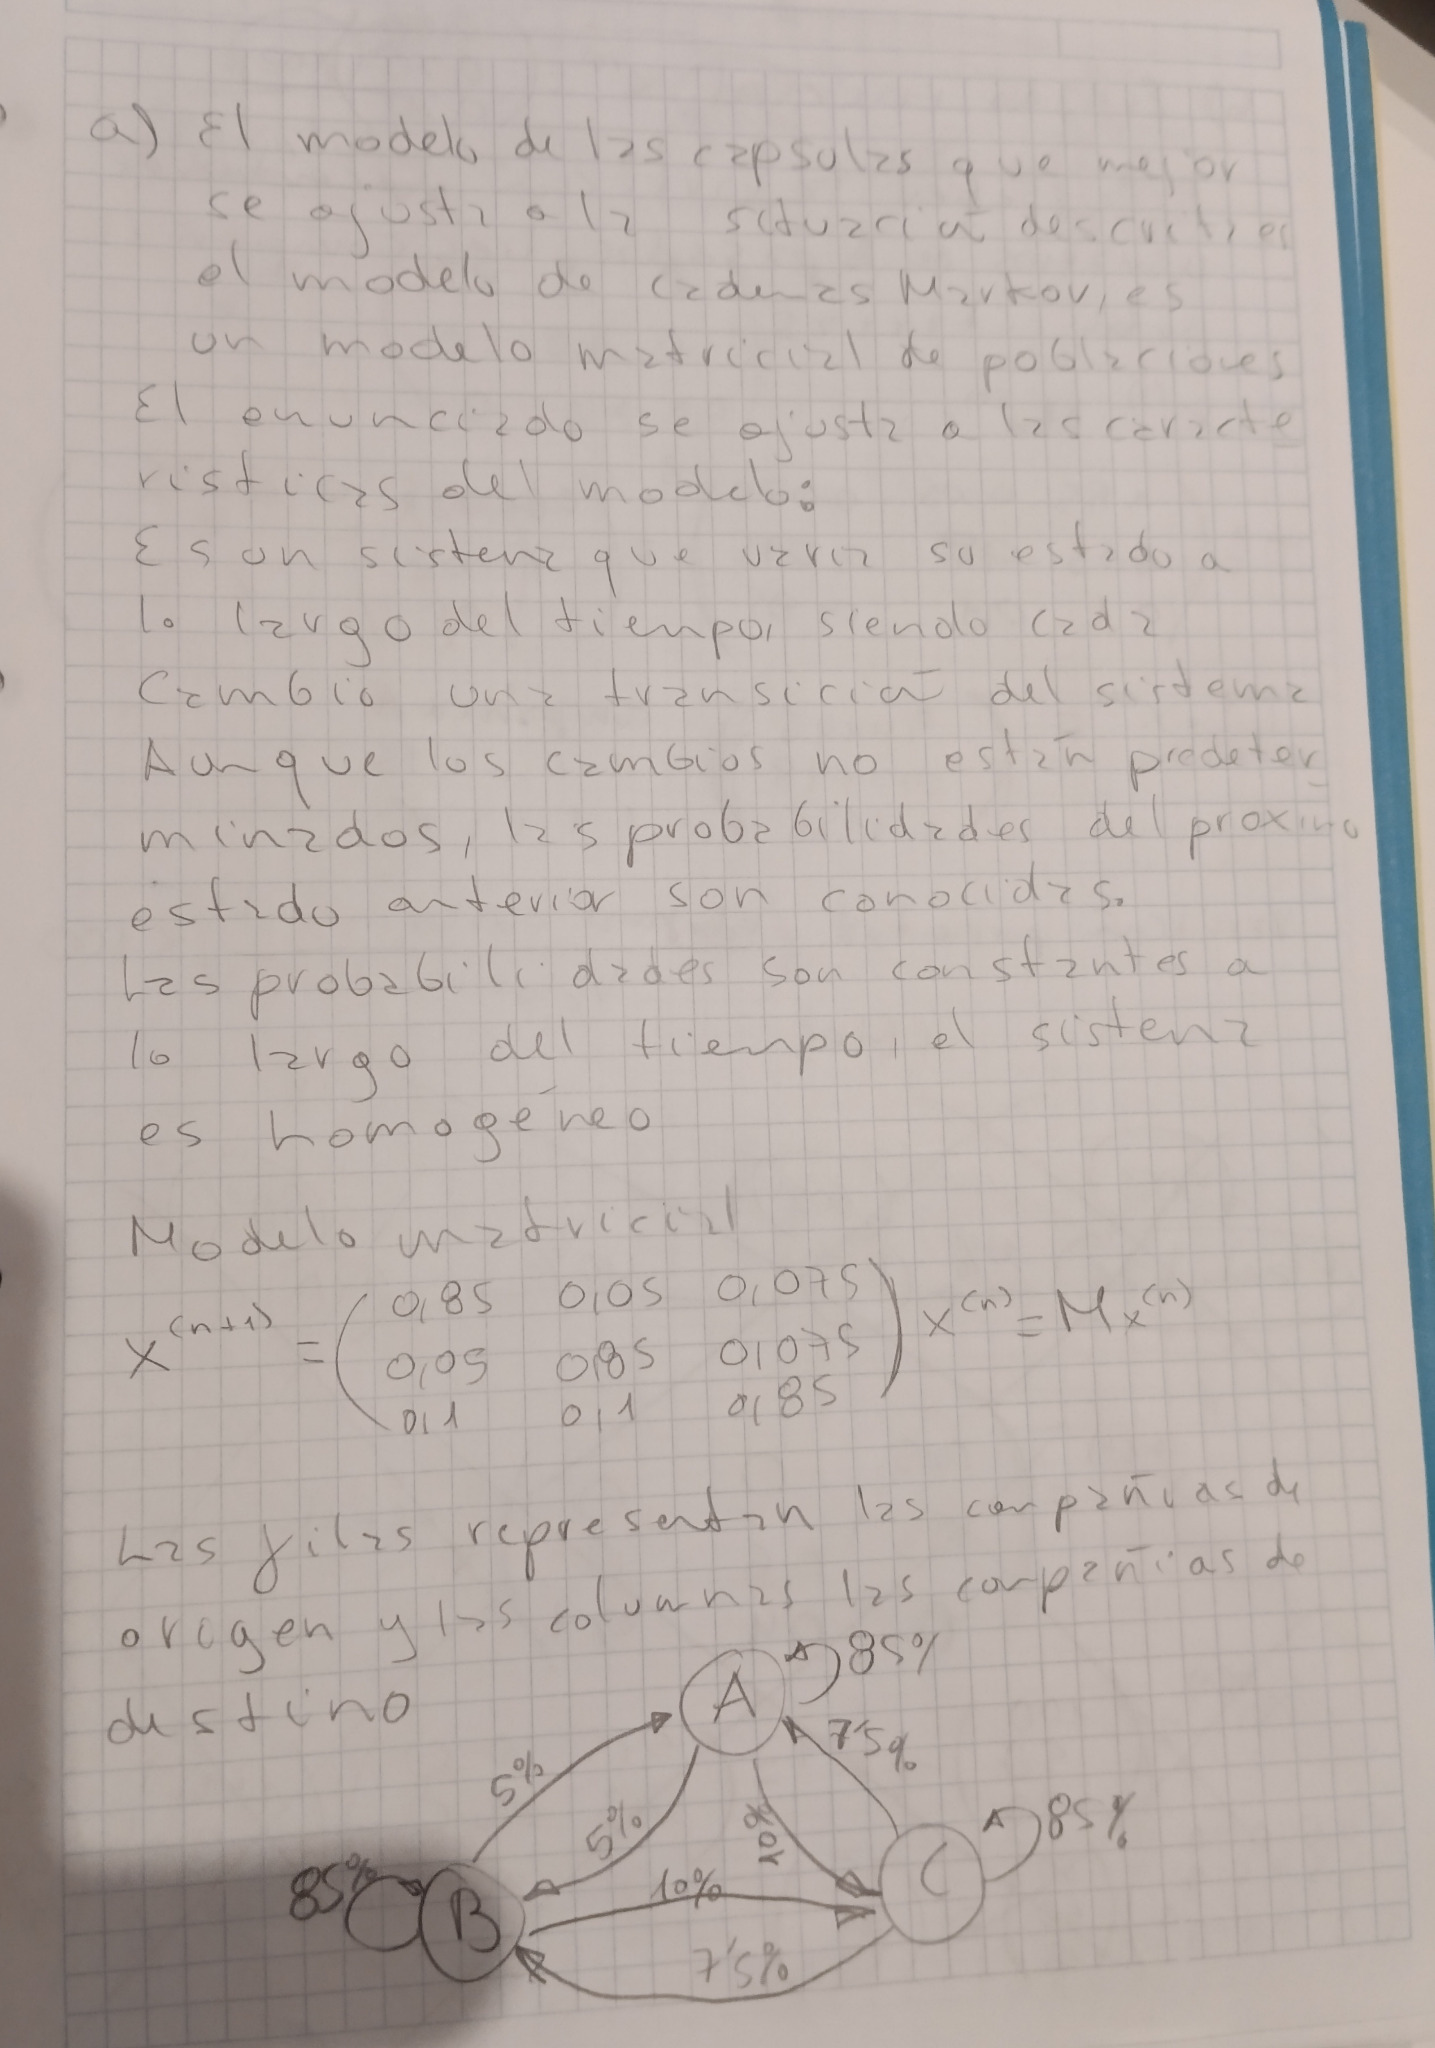 a) El modelo de las capsulas que mejor
se ajusta a la situación descrita es
el modelo de cadenas Markov, es
un modelo matricial de poblaciones
El enunciado se ajusta a las caracte
risticas del modelo:
Es un sistema que varia su estado a
lo largo del tiempo, siendo cada
Cambio una transición del sistema
Aunque los cambios no están predeter
minados, las probabilidades del proximo
estado anterior son conocidas.
Las probabilidades son constantes a
lo largo del tiempo, el sistema
es homogéneo
Modelo matricial
0,85 0,05 0,075
x^(n+1) = ( 0,05 0,85 0,075 ) x^(n) = Mx^(n)
0,1 0,1 0,85
Las filas representan las compañias de
origen y las columnas las compañias de
destino
A 85%
5% 5% 10% 7'5%
85% B 10% C 85%
7'5%